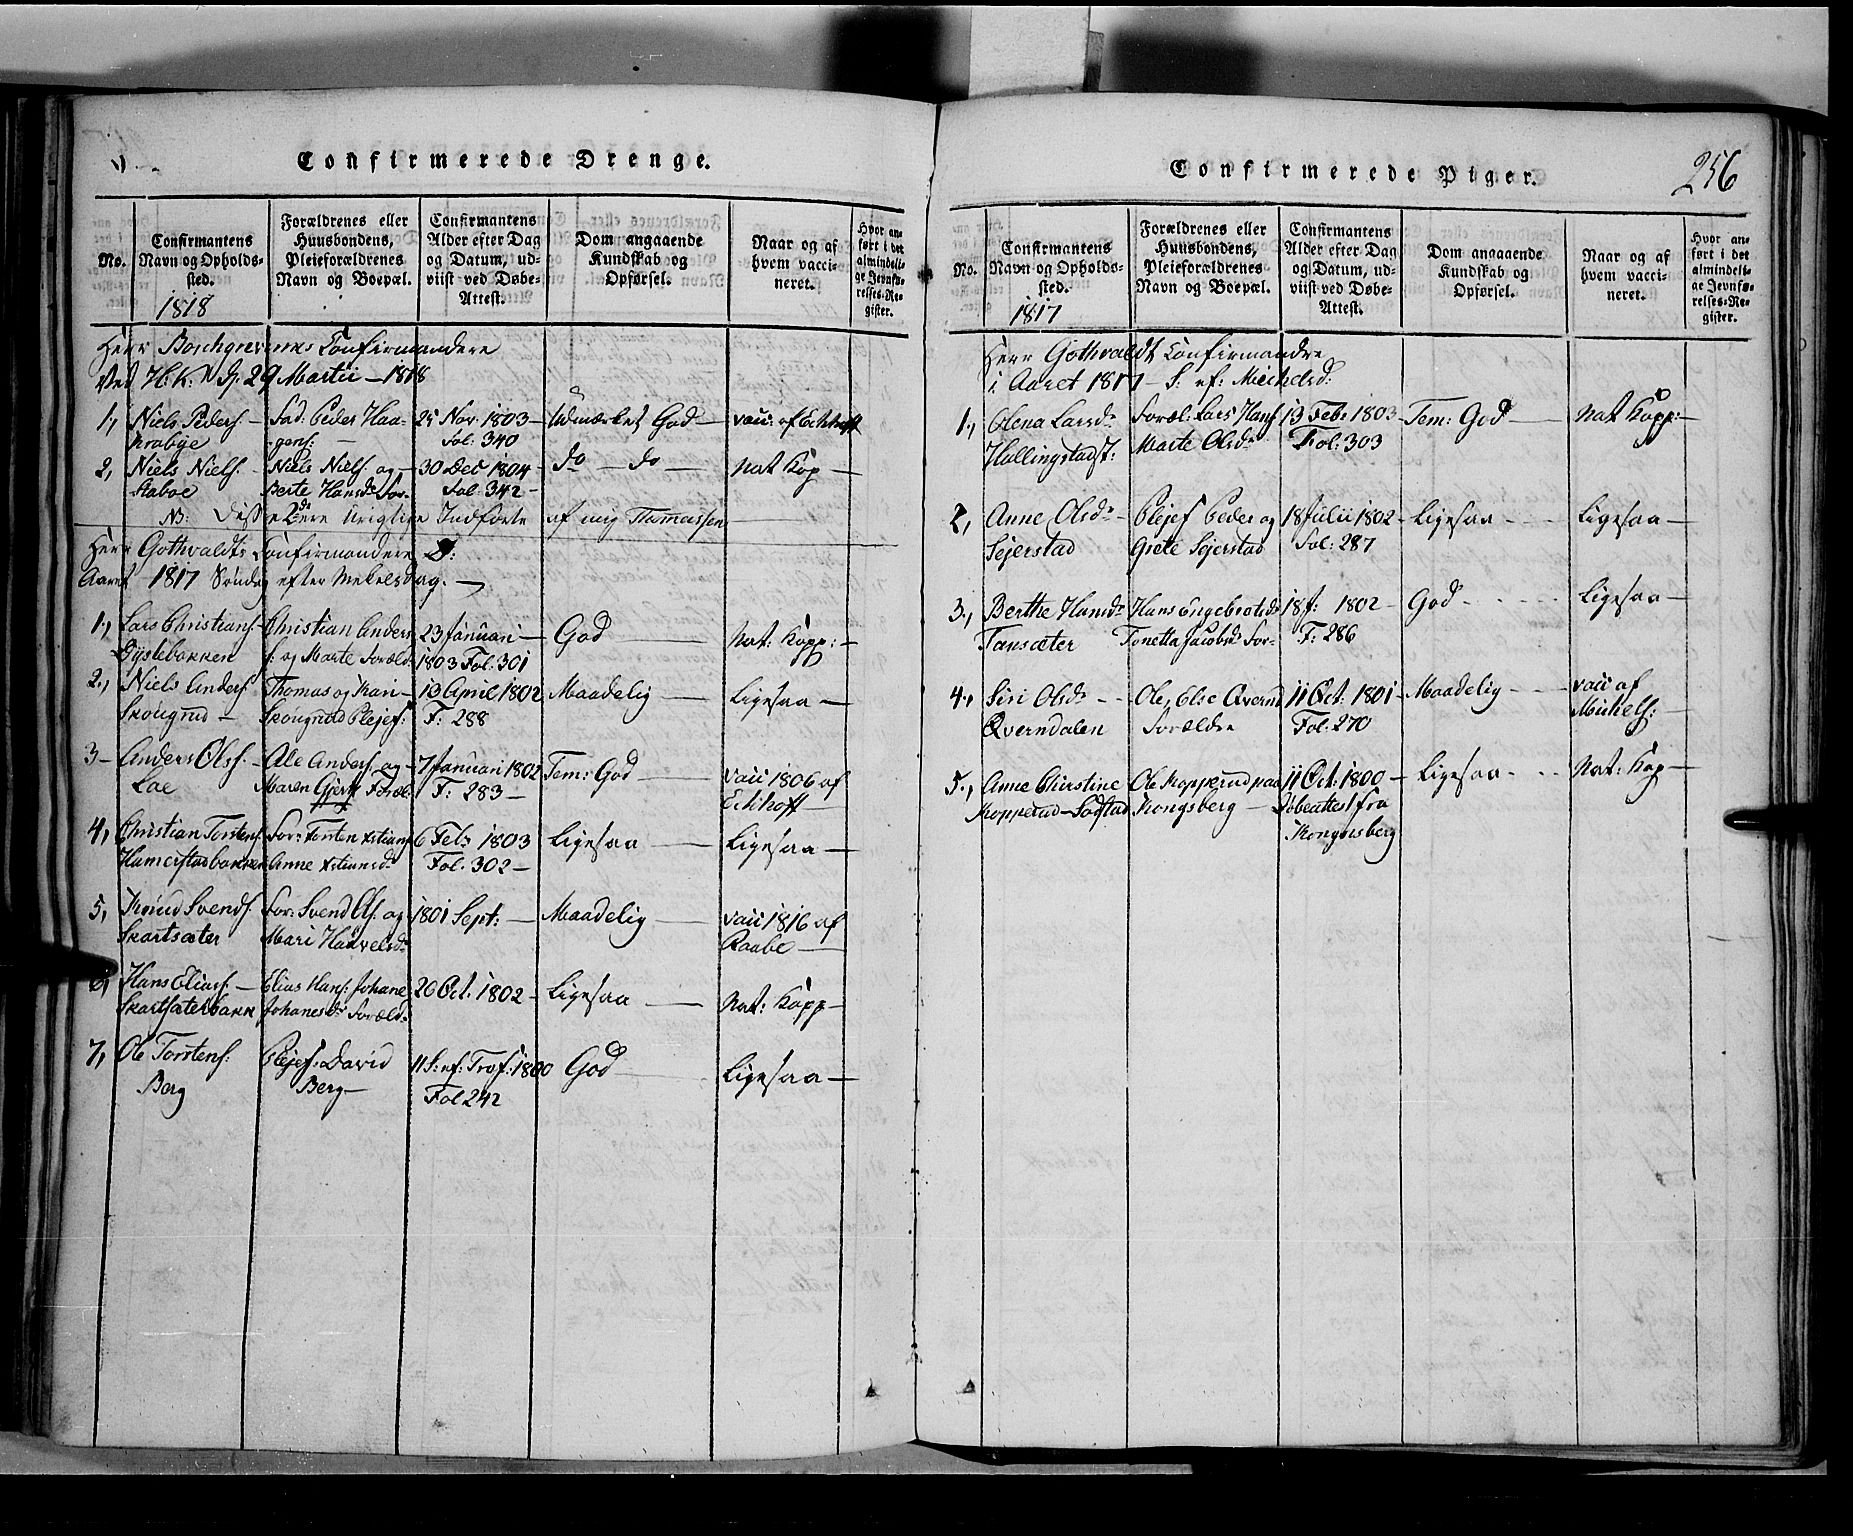 Confirmerede Drenge.
No.
Confirmantens Navn og Opholdssted.
1818
Forældrenes eller Huusbondens, Pleieforældrenes Navn og Boepæl.
Confirmantens Alder efter Dag og Datum, udviist ved Døbe-Attest.
Dom angaaende Kundskab og Opførsel.
Naar og af hvem vaccineret.
Hvor anført i det almindelige Jevnførelses-Register.
Herr Borchgrevincks Confirmandere
Ved H: K: 29 Martii - 1818
1, Niels Peders. Fad: Peder Haa- 25 Nov: 1803- Udmærket God vacc: af Eckhoff
Krabye gens: Fol: 340
2, Niels Niels. Niels Niels: og 30 Dec 1804- do - do Nat Kop
Staboe Berte Hansd. For- Fol: 342-
NB: Disse 2de ere Urigtige Indførte af mig Thomassen
Herr Gothvaldts Confirmandere
Aaret 1817 Søndag efter Mekelsdag.
1, Lars Christians. Christian Anders 23 Januari God Nat: Kopp:
Dystebakken s: og Marte Foræld: 1803 Fol: 301
2, Niels Anders Thomas og Kari 13 April 1802 Maadelig Ligesaa
Skougrud Skougrud Plejef: F: 288
3- Anders Ols. Ole Anders og 7 Januari 1802 Tem: God vacc 1806 af
Loe Maren Foræl: F: 283 Eckhoff
4, Christian Torstens. For: Torsten Xstians 6 Feb 1803 Ligesaa Ligesaa
Hamerstadbakken Anne Xstiansd. Fol: 302
5, Knud Svends. For: Svend Ols. og 1801 Sept: Maadelig vacc 1816 af
Skartsæter Mari Haavelsd. Raabe
6, Hans Elias. Elias Hans: Johane 20 Oct. 1802 Ligesaa Nat: Kopp
Skartsæterbakk Johanesd. Foræld.
7, Ole Torstens: Plejef: David 11 S: ef: Trof: 1800 God Ligesaa
Berg Berg Fol 242
Confirmerede Piger.
256
No.
Confirmantens Navn og Opholdssted.
1817
Forældrenes eller Huusbondens, Pleieforældrenes Navn og Boepæl.
Confirmantens Alder efter Dag og Datum, udviist ved Døbe-Attest.
Dom angaaende Kundskab og Opførsel.
Naar og af hvem vaccineret.
Hvor anført i det almindelige Jevnførelses-Register.
Herr Gothvaldt Confirmandre
i Aaret 1817 - S: ef: Michelsd:
1, Olena Larsd. Foræl: Lars Hans 13 Feb: 1803 Tem: God Nat Kopp:
Hallingstadst: Marte Olsd. Fol: 303
2, Anne Olsd. Plejef Peder og 18 Julii 1802 Ligesaa Ligesaa
Sejerstad Grete Sejerstad Fol: 287
3, Berthe Hansd. Hans Engebretsd. 18 J: 1802 God Ligesaa
Tansæter Tonetta Jacobsd. For- F: 286
4, Siri Olsd. Ole, Else Qvernd 11 Oct: 1801 Maadelig vacc af
Qverndalen Forældre Fol: 270 Michels:
5, Anne Christine Ole Kopperud paa 11 Oct: 1800 Ligesaa Nat: Kop
Kopperud Kongsberg Døbeattest fra
Kongsberg